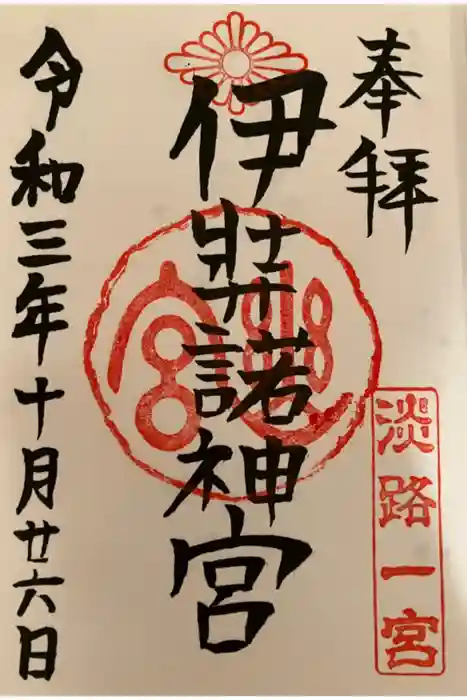 奉拝
淡路一宮
伊弉諾神宮
令和三年十月廿六日